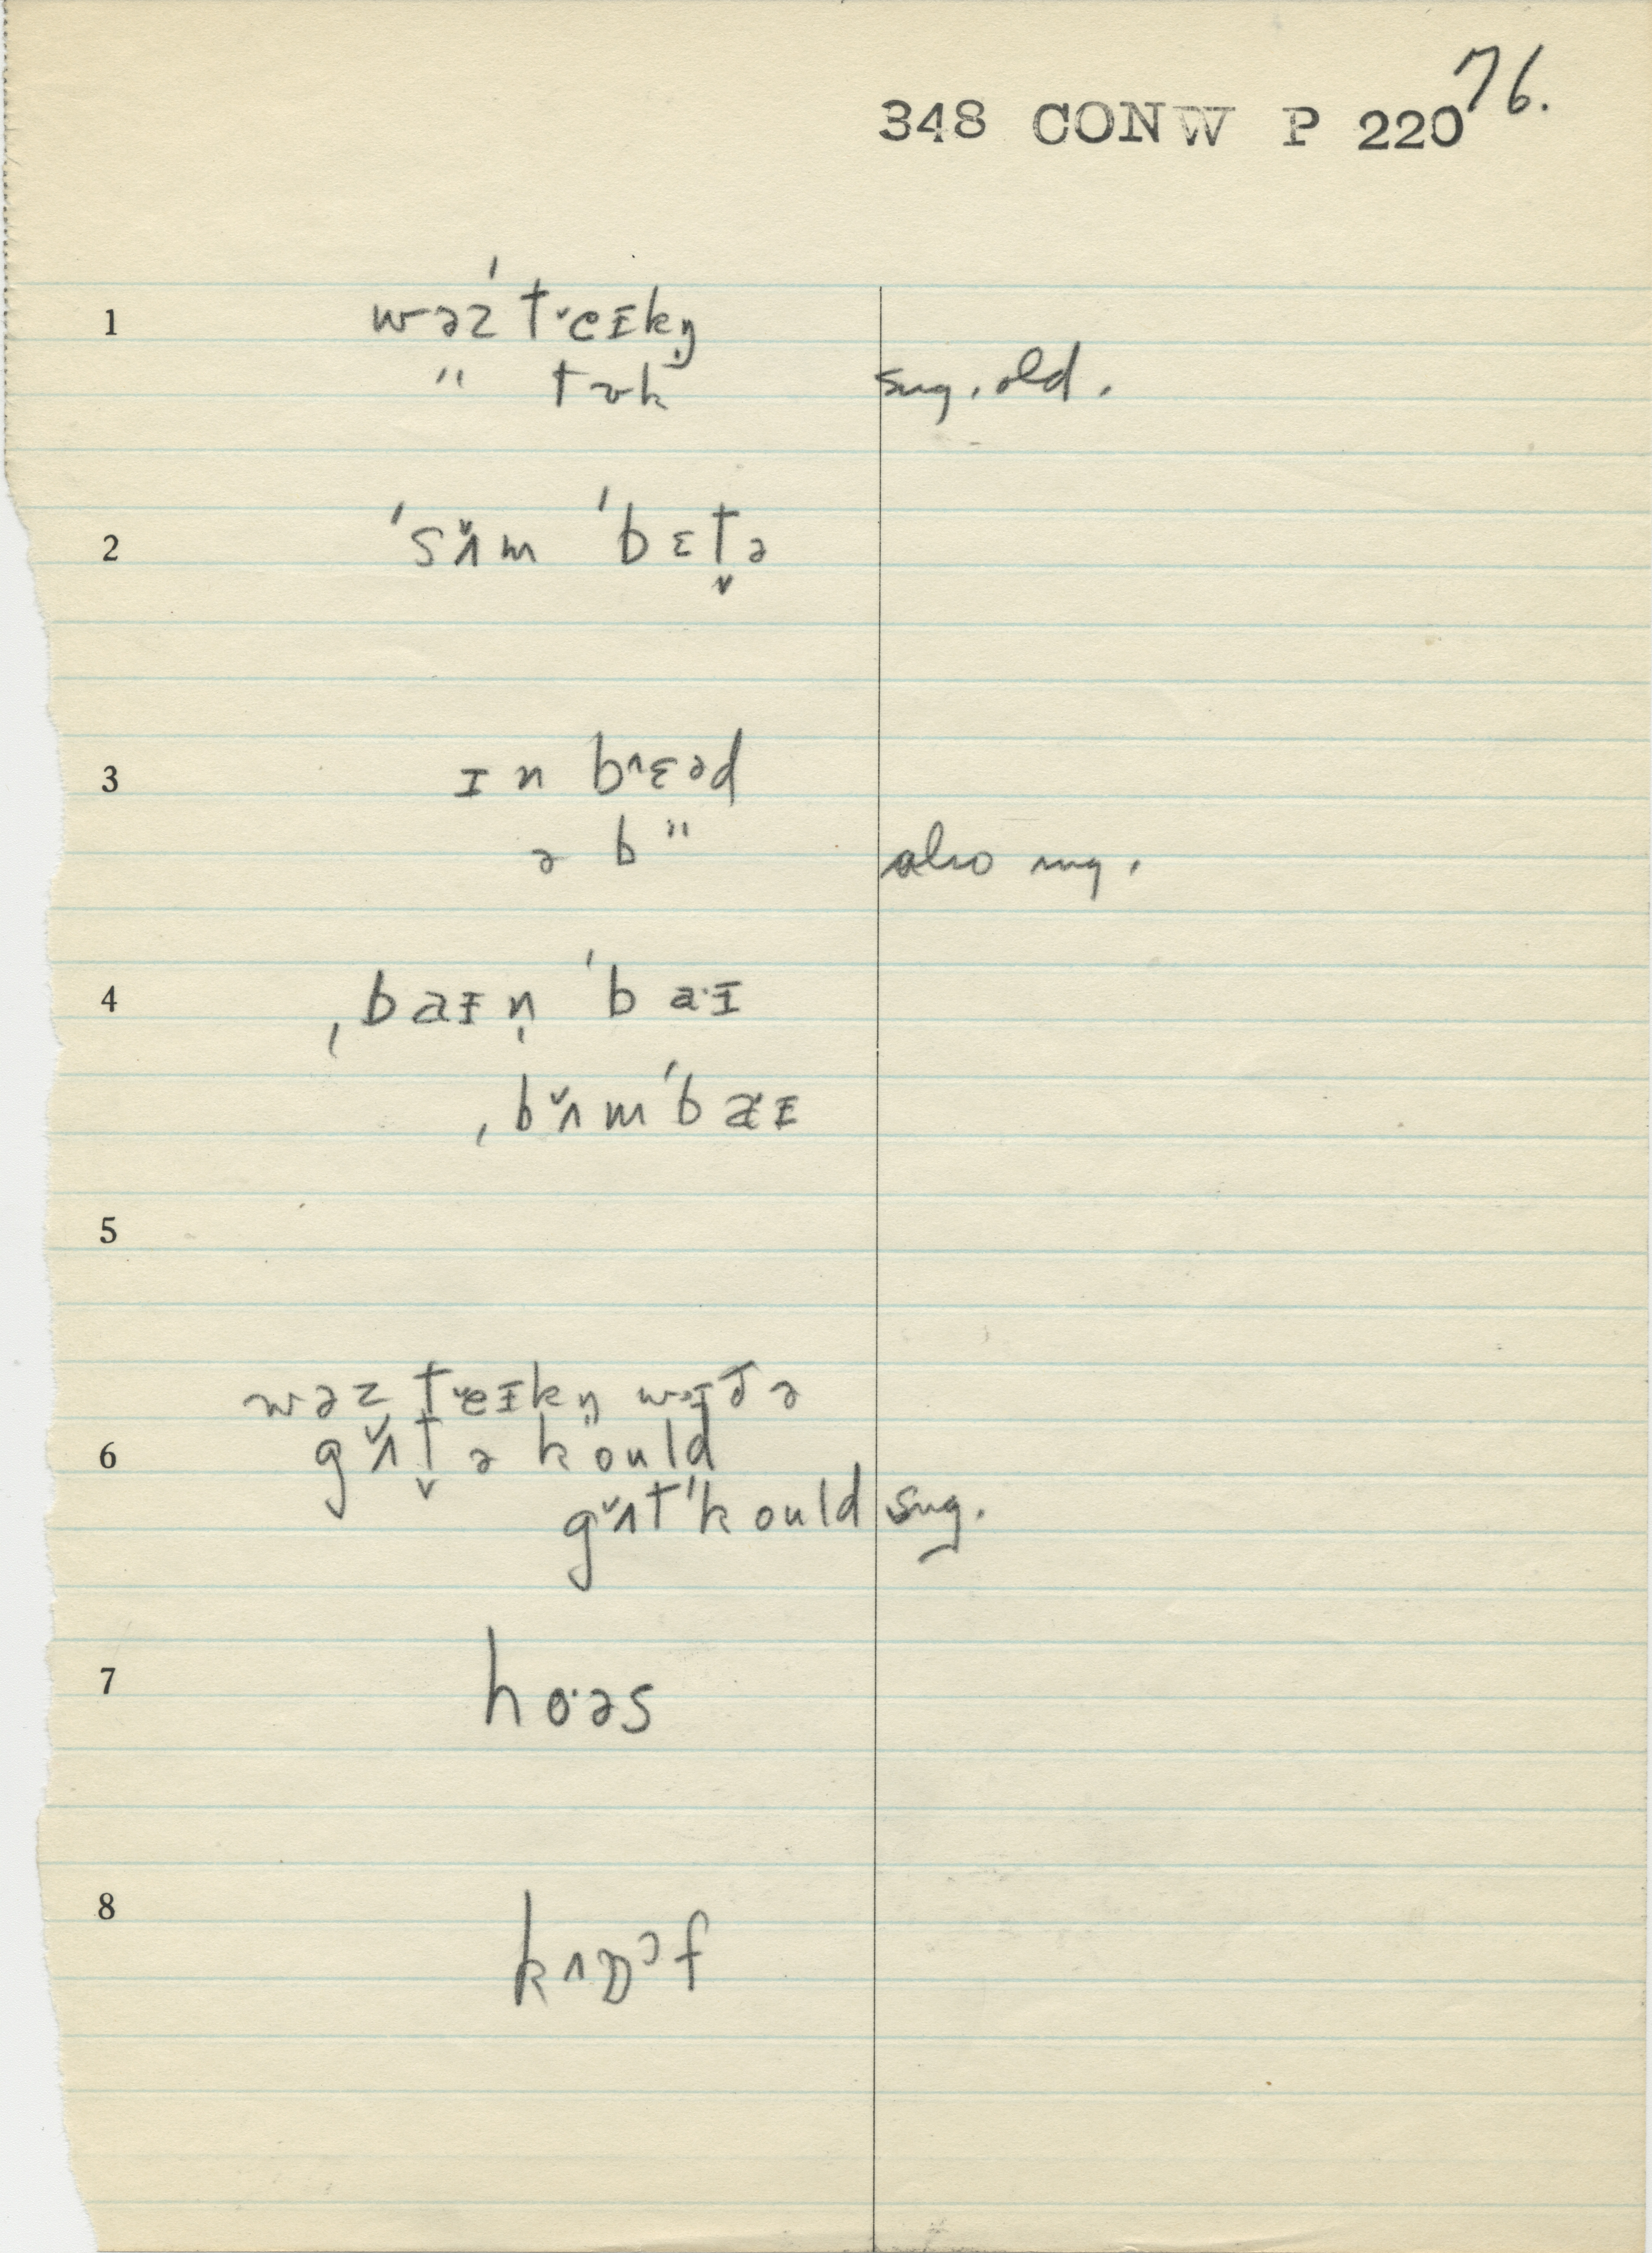 76.
348 CONW P 220
1 wəz ˈtˇeɪkŋ̩
" tʊk sug. old.
2 ˈsʌ̌m ˈbɛt̬ə
3 ɪn b^ɛəd
ə b " also sug.
4 ˌbaɪn̩ ˈba·ɪ
ˌbʌ̌mˈba·ɪ
5
wəz tˇeɪkŋ̩ wɪð ə
6 gʌ̌t̬ ə kould
gʌ̌tˈkould sug.
7 ho·əs
8 k^ɒɔf